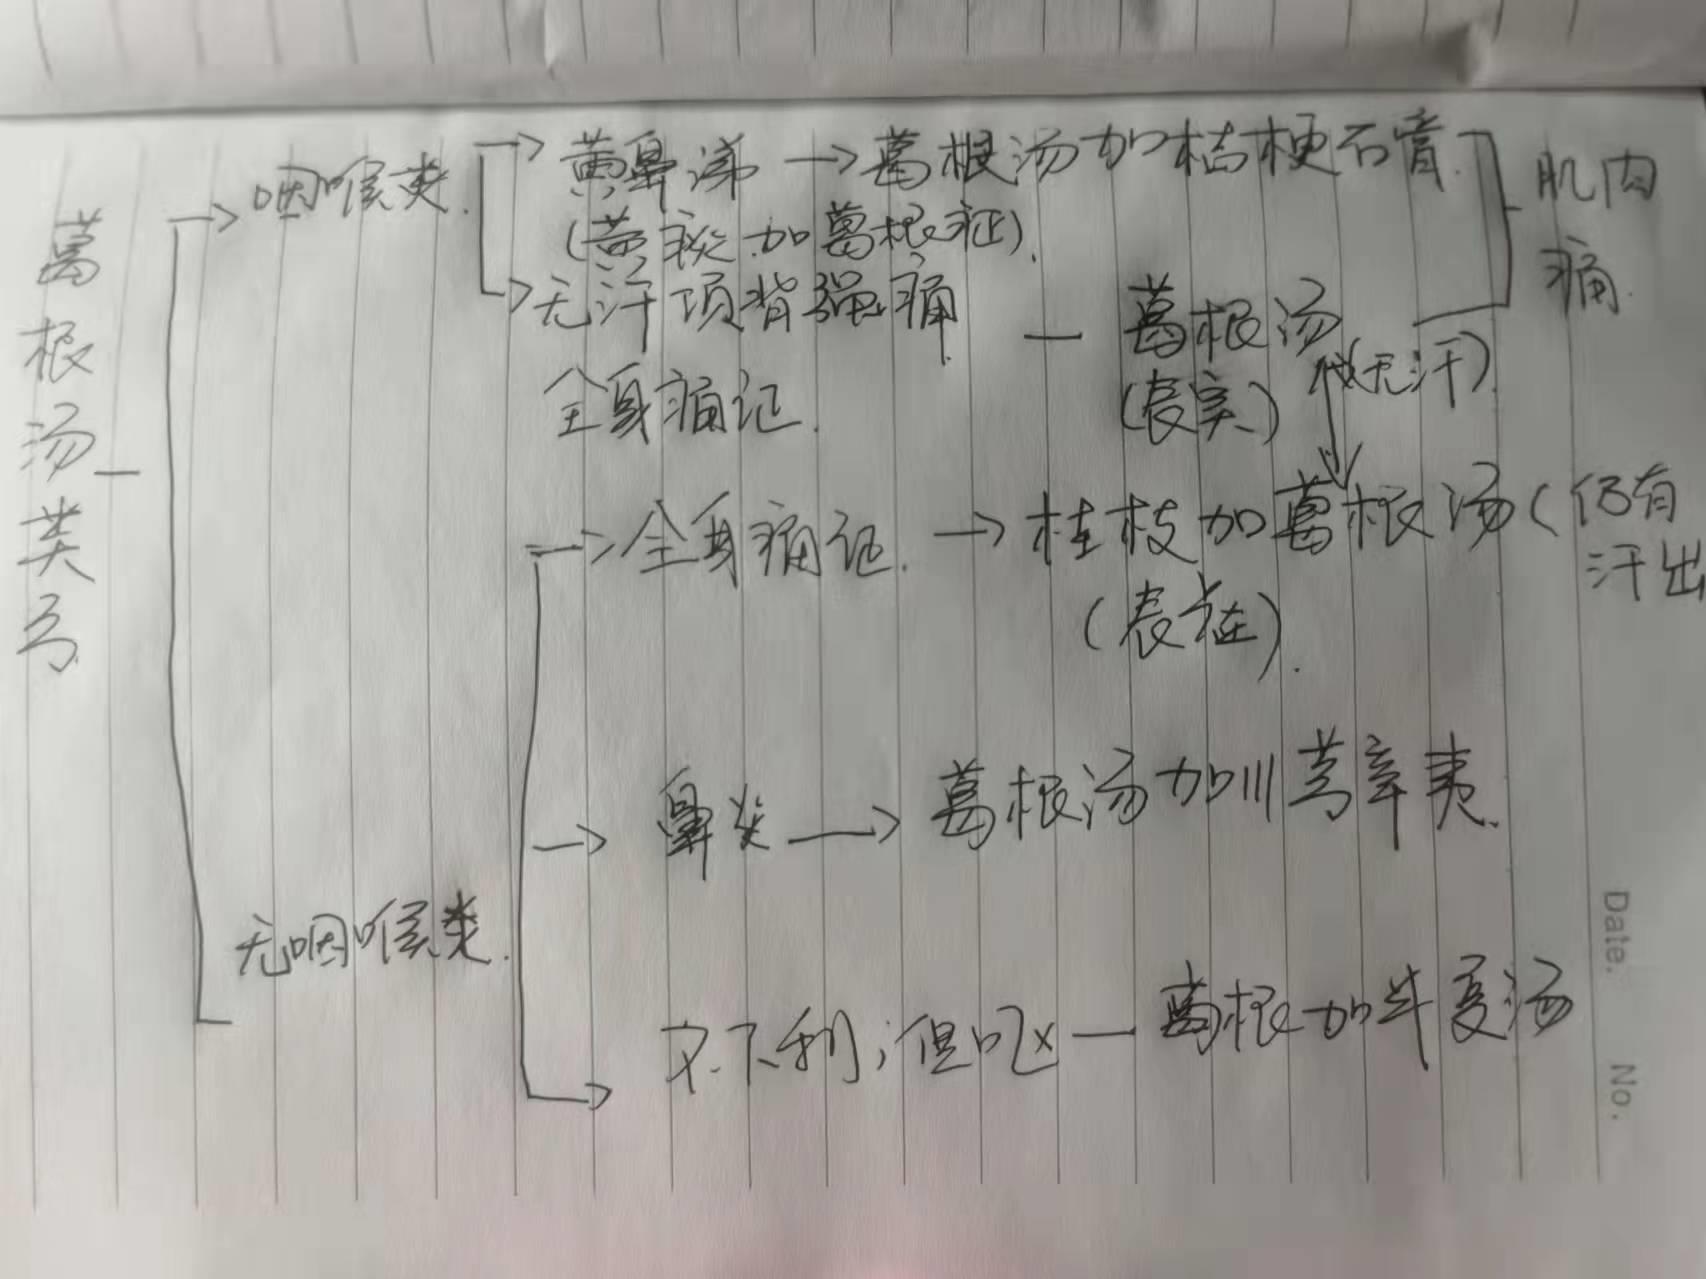 葛根汤类方
咽喉类.
黄鼻涕 → 葛根汤加桔梗石膏.
(黄痰加葛根证).
无汗项背强痛
全身痛证.
葛根汤
(表实)
(无汗)
肌肉
痛.
全身痛证. → 桂枝加葛根汤(仍有
汗出
(表虚).
无咽喉类.
鼻炎 → 葛根汤加川芎辛夷.
不下利;但呕 — 葛根加半夏汤
Date.
No.